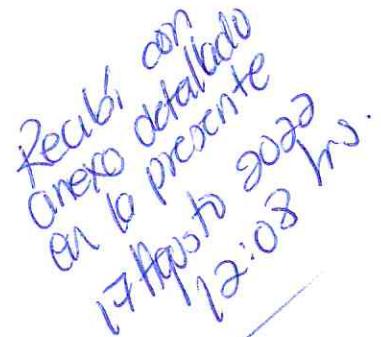 Recibí con
anexo detallado
en la presente
17 Agosto 2022
12:03 hrs.